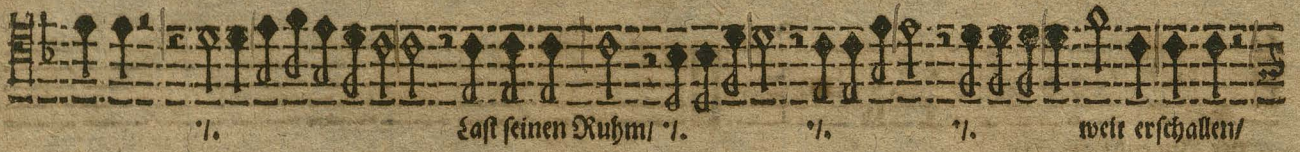 ·/. Last seinen Ruhm/ ·/. ·/. ·/. weit erschallen/